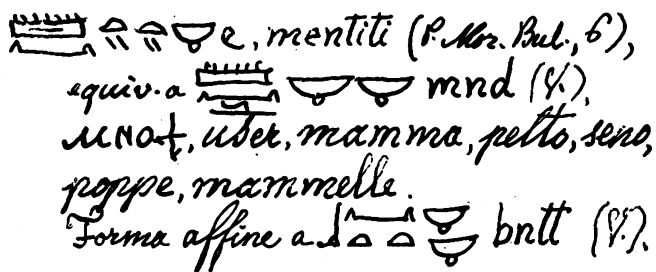 e, mentiti (P. Mor. Bul., 6),
equiv. a mnd (V.),
ⲙⲛⲟϯ, uber, mamma, petto, seno,
poppe, mammelle.
Forma affine a bntt (V.).